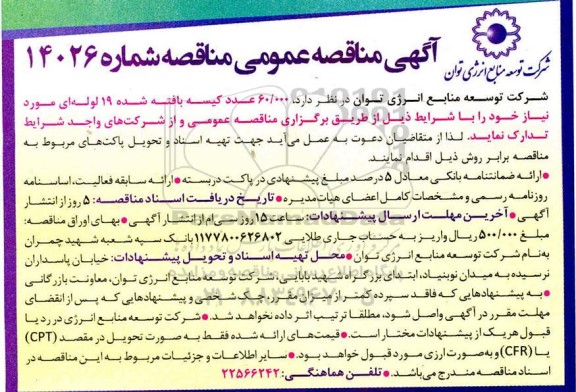 آگهی مناقصه عمومی مناقصه شماره ۱۴۰۲۶
شرکت توسعه منابع انرژی توان
شرکت توسعه منابع انرژی توان در نظر دارد، ۶۰/۰۰۰ عدد کیسه بافته شده ۱۹ لوله‌ای مورد
نیاز خود را با شرایط ذیل از طریق برگزاری مناقصه عمومی و از شرکت‌های واجد شرایط
تدارک نماید. لذا از متقاضیان دعوت به عمل می‌آید جهت تهیه اسناد و تحویل پاکت‌های مربوط به
مناقصه برابر روش ذیل اقدام نمایند.
• ارائه ضمانتنامه بانکی معادل ۵ درصد مبلغ پیشنهادی در پاکت دربسته • ارائه سابقه فعالیت، اساسنامه
روزنامه رسمی و مشخصات کامل اعضای هیأت مدیره • تاریخ دریافت اسناد مناقصه: ۵ روز از انتشار
آگهی • آخرین مهلت ارسال پیشنهادات: ساعت ۱۵ روز سی‌ام از انتشار آگهی • بهای اوراق مناقصه:
مبلغ ۵۰۰/۰۰۰ ریال واریز به حساب جاری طلایی ۱۱۷۷۸۰۰۶۲۶۸۰۲ بانک سپه شعبه شهید چمران
به‌نام شرکت توسعه منابع انرژی توان • محل تهیه اسناد و تحویل پیشنهادات: خیابان پاسداران
نرسیده به میدان نوبنیاد، ابتدای بزرگراه شهید بابائی، شرکت توسعه منابع انرژی توان، معاونت بازرگانی
• به پیشنهادهایی که فاقد سپرده، کمتر از میزان مقرر، چک شخصی و پیشنهادهایی که پس از انقضای
مهلت مقرر در آگهی واصل شود، مطلقا ترتیب اثر داده نخواهد شد. • شرکت توسعه منابع انرژی در رد یا
قبول هر یک از پیشنهادات مختار است. • قیمت‌های ارائه شده فقط به صورت تحویل در مقصد (CPT)
یا (CFR) و به‌صورت ارزی مورد قبول خواهد بود. • سایر اطلاعات و جزئیات مربوط به این مناقصه در
اسناد مناقصه مندرج می‌باشد. • تلفن هماهنگی: ۲۲۵۶۶۲۴۲